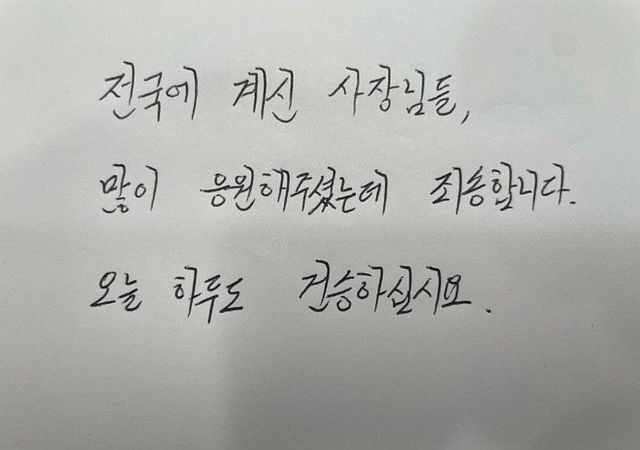 전국에 계신 사장님들,
많이 응원해주셨는데 죄송합니다.
오늘 하루도 건승하십시요.